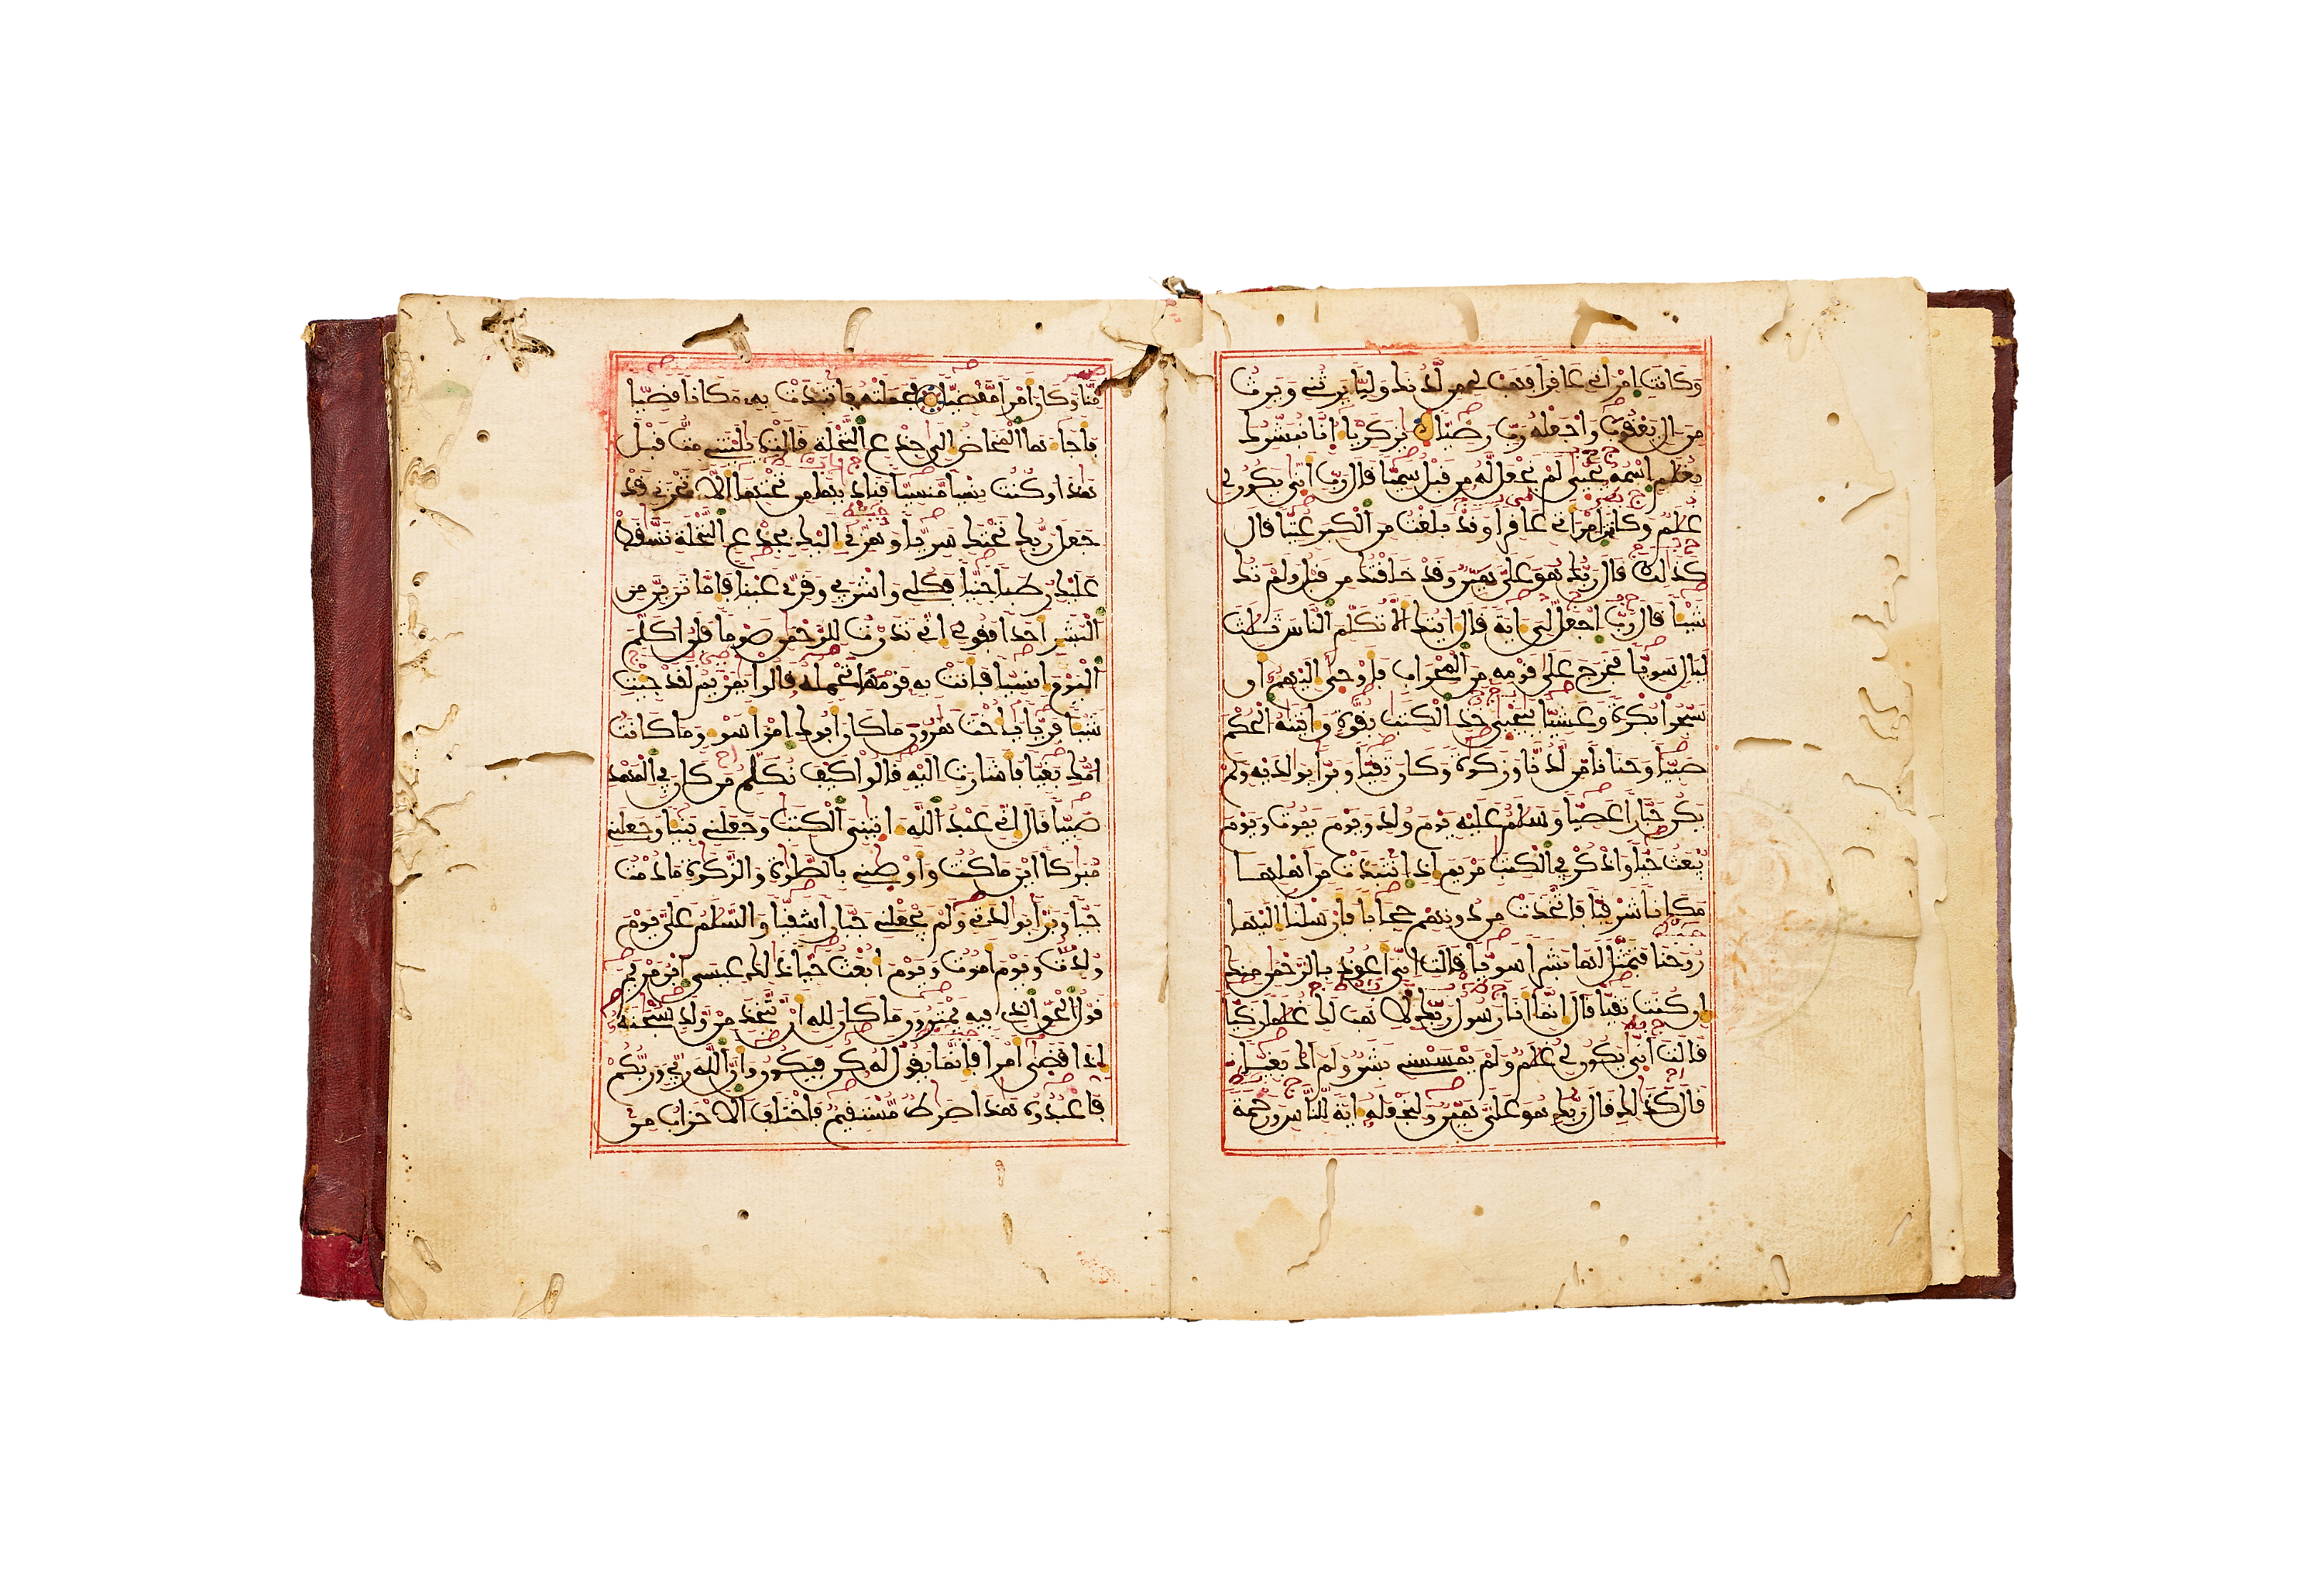 وَكَانَتِ اِمْرَأَتِي عَاقِرًا فَهَبْ لِي مِن لَّدُنكَ وَلِيًّا يَرِثُنِي وَيَرِثُ
مِنَ ـالِ يَعْقُوبَ وَاجْعَلْهُ رَبِّ رَضِيًّا يَٰزَكَرِيَّاءُ اِنَّا نُبَشِّرُكَ
بِغُلَٰمٍ اِسْمُهُ يَحْيَىٰ لَمْ نَجْعَل لَّهُ مِن قَبْلُ سَمِيًّا قَالَ رَبِّ أَنَّىٰ يَكُونُ لِي
غُلَٰمٌ وَكَانَتِ اِمْرَأَتِي عَاقِرًا وَقَدْ بَلَغْتُ مِنَ اَلْكِبَرِ عُتِيًّا قَالَ
كَذَٰلِكَ قَالَ رَبُّكَ هُوَ عَلَيَّ هَيِّنٌ وَقَدْ خَلَقْتُكَ مِن قَبْلُ وَلَمْ تَكُ
شَيْـًٔا قَالَ رَبِّ اِجْعَل لِّيَ ءَايَةً قَالَ ءَايَتُكَ أَلَّا تُكَلِّمَ اَلنَّاسَ ثَلَٰثَ
لَيَالٍ سَوِيًّا فَخَرَجَ عَلَىٰ قَوْمِهِ مِنَ اَلْمِحْرَابِ فَأَوْحَىٰ إِلَيْهِمُ أَن
سَبِّحُوا بُكْرَةً وَعَشِيًّا يَٰيَحْيَىٰ خُذِ اِلْكِتَٰبَ بِقُوَّةٍ وَءَاتَيْنَٰهُ اُلْحُكْمَ
صَبِيًّا وَحَنَانًا مِّن لَّدُنَّا وَزَكَوٰةً وَكَانَ تَقِيًّا وَبَرًّا بِوَٰلِدَيْهِ وَلَمْ
يَكُن جَبَّارًا عَصِيًّا وَسَلَٰمٌ عَلَيْهِ يَوْمَ وُلِدَ وَيَوْمَ يَمُوتُ وَيَوْمَ
يُبْعَثُ حَيًّا وَاذْكُرْ فِي اِلْكِتَٰبِ مَرْيَمَ إِذِ اِنتَبَذَتْ مِنَ اَهْلِهَا
مَكَانًا شَرْقِيًّا فَاتَّخَذَتْ مِن دُونِهِمْ حِجَابًا فَأَرْسَلْنَا إِلَيْهَا
رُوحَنَا فَتَمَثَّلَ لَهَا بَشَرًا سَوِيًّا قَالَتِ اِنِّيَ أَعُوذُ بِالرَّحْمَٰنِ مِنكَ
إِن كُنتَ تَقِيًّا قَالَ إِنَّمَا أَنَا رَسُولُ رَبِّكِ لِأَهَبَ لَكِ غُلَٰمًا زَكِيًّا
قَالَتَ اَنَّىٰ يَكُونُ لِي غُلَٰمٌ وَلَمْ يَمْسَسْنِي بَشَرٌ وَلَمَ اَكُ بَغِيًّا
قَالَ كَذَٰلِكِ قَالَ رَبُّكِ هُوَ عَلَيَّ هَيِّنٌ وَلِنَجْعَلَهُ ءَايَةً لِّلنَّاسِ وَرَحْمَةً
مِّنَّا وَكَانَ أَمْرًا مَّقْضِيًّا فَحَمَلَتْهُ فَانتَبَذَتْ بِهِ مَكَانًا قَصِيًّا
فَأَجَاءَهَا اَلْمَخَاضُ إِلَىٰ جِذْعِ اِلنَّخْلَةِ قَالَتْ يَٰلَيْتَنِي مِتُّ قَبْلَ
هَٰذَا وَكُنتُ نِسْيًا مَّنسِيًّا فَنَادَىٰهَا مِن تَحْتِهَا أَلَّا تَحْزَنِي قَدْ
جَعَلَ رَبُّكِ تَحْتَكِ سَرِيًّا وَهُزِّي إِلَيْكِ بِجِذْعِ اِلنَّخْلَةِ تَسَّٰقَطْ
عَلَيْكِ رُطَبًا جَنِيًّا فَكُلِي وَاشْرَبِي وَقَرِّي عَيْنًا فَإِمَّا تَرَيِنَّ مِنَ
اَلْبَشَرِ أَحَدًا فَقُولِي إِنِّي نَذَرْتُ لِلرَّحْمَٰنِ صَوْمًا فَلَنُ اكَلِّمَ
اَلْيَوْمَ إِنسِيًّا فَأَتَتْ بِهِ قَوْمَهَا تَحْمِلُهُ قَالُوا يَٰمَرْيَمُ لَقَدْ جِئْتِ
شَيْـًٔا فَرِيًّا يَٰأُخْتَ هَٰرُونَ مَا كَانَ أَبُوكِ اِمْرَأَ سَوْءٍ وَمَا كَانَتُ
امُّكِ بَغِيًّا فَأَشَارَتِ اِلَيْهِ قَالُوا كَيْفَ نُكَلِّمُ مَن كَانَ فِي اِلْمَهْدِ
صَبِيًّا قَالَ إِنِّي عَبْدُ اُللَّهِ ءَاتَيٰنِيَ اَلْكِتَٰبَ وَجَعَلَنِي نَبِيًّا وَجَعَلَنِي
مُبَٰرَكًا أَيْنَ مَا كُنتُ وَأَوْصَٰنِي بِالصَّلَوٰةِ وَالزَّكَوٰةِ مَا دُمْتُ
حَيًّا وَبَرًّا بِوَٰلِدَتِي وَلَمْ يَجْعَلْنِي جَبَّارًا شَقِيًّا وَالسَّلَٰمُ عَلَيَّ يَوْمَ
وُلِدتُّ وَيَوْمَ أَمُوتُ وَيَوْمَ أُبْعَثُ حَيًّا ذَٰلِكَ عِيسَى اَبْنُ مَرْيَمَ
قَوْلُ اُلْحَقِّ اِلذِي فِيهِ يَمْتَرُونَ مَا كَانَ لِلهِ أَنْ يَّتَّخِذَ مِنْ وَّلَدٍ سُبْحَٰنَهُ
إِذَا قَضَىٰ أَمْرًا فَإِنَّمَا يَقُولُ لَهُ كُن فَيَكُونُ وَأَنَّ اَللَّهَ رَبِّي وَرَبُّكُمْ
فَاعْبُدُوهُ هَٰذَا صِرَٰطٌ مُّسْتَقِيمٌ فَاخْتَلَفَ اَلَاحْزَابُ مِنۢ